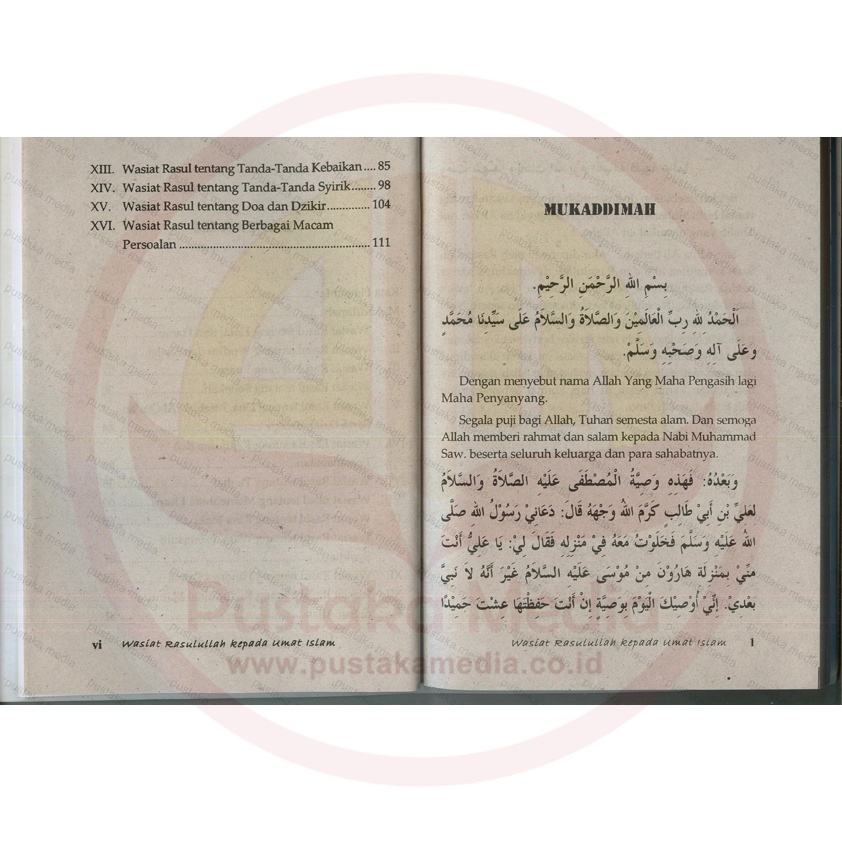 XIII. Wasiat Rasul tentang Tanda-Tanda Kebaikan .... 85
XIV. Wasiat Rasul tentang Tanda-Tanda Syirik........ 98
XV. Wasiat Rasul tentang Doa dan Dzikir............. 104
XVI. Wasiat Rasul tentang Berbagai Macam
Persoalan .......................................................... 111
vi Wasiat Rasulullah kepada Umat Islam
MUKADDIMAH
بِسْمِ اللهِ الرَّحْمَنِ الرَّحِيْمِ.
اَلْحَمْدُ للهِ رِبِّ الْعَالَمِيْنَ وَالصَّلاَةُ وَالسَّلاَمُ عَلَى سَيِّدِنَا مُحَمَّدٍ
وعَلَى آلِهِ وَصَحْبِهِ وَسَلَّمْ.
Dengan menyebut nama Allah Yang Maha Pengasih lagi
Maha Penyanyang.
Segala puji bagi Allah, Tuhan semesta alam. Dan semoga
Allah memberi rahmat dan salam kepada Nabi Muhammad
Saw. beserta seluruh keluarga dan para sahabatnya.
وَبَعْدُهُ: فَهَذِهِ وَصِيَّةُ الْمُصْطَفَى عَلَيْهِ الصَّلاَةُ وَالسَّلاَمُ
لعَلِيِّ بْنِ أَبِيْ طَالِبٍ كَرَّمَ اللهُ وَجْهَهُ قَالَ: دَعَانِيْ رَسُوْلُ اللهِ صَلَّى
اللهُ عَلَيْهِ وَسَلَّمَ فَخَلَوْتُ مَعَهُ فِيْ مَنْزِلِهِ فَقَالَ لِيْ: يَا عَلِيُّ أَنْتَ
مِنِّيْ بِمَنْزِلَةِ هَارُوْنَ مِنْ مُوْسَى عَلَيْهِ السَّلاَمُ غَيْرَ أَنَّهُ لاَ نَبِيَّ
بَعْدِيْ. إِنِّيْ أُوْصِيْكَ الْيَوْمَ بِوَصِيَّةٍ إِنْ أَنْتَ حَفِظْتَهَا عِشْتَ حَمِيْدًا
Wasiat Rasulullah kepada Umat Islam 1
Pustaka Media
www.pustakamedia.co.id